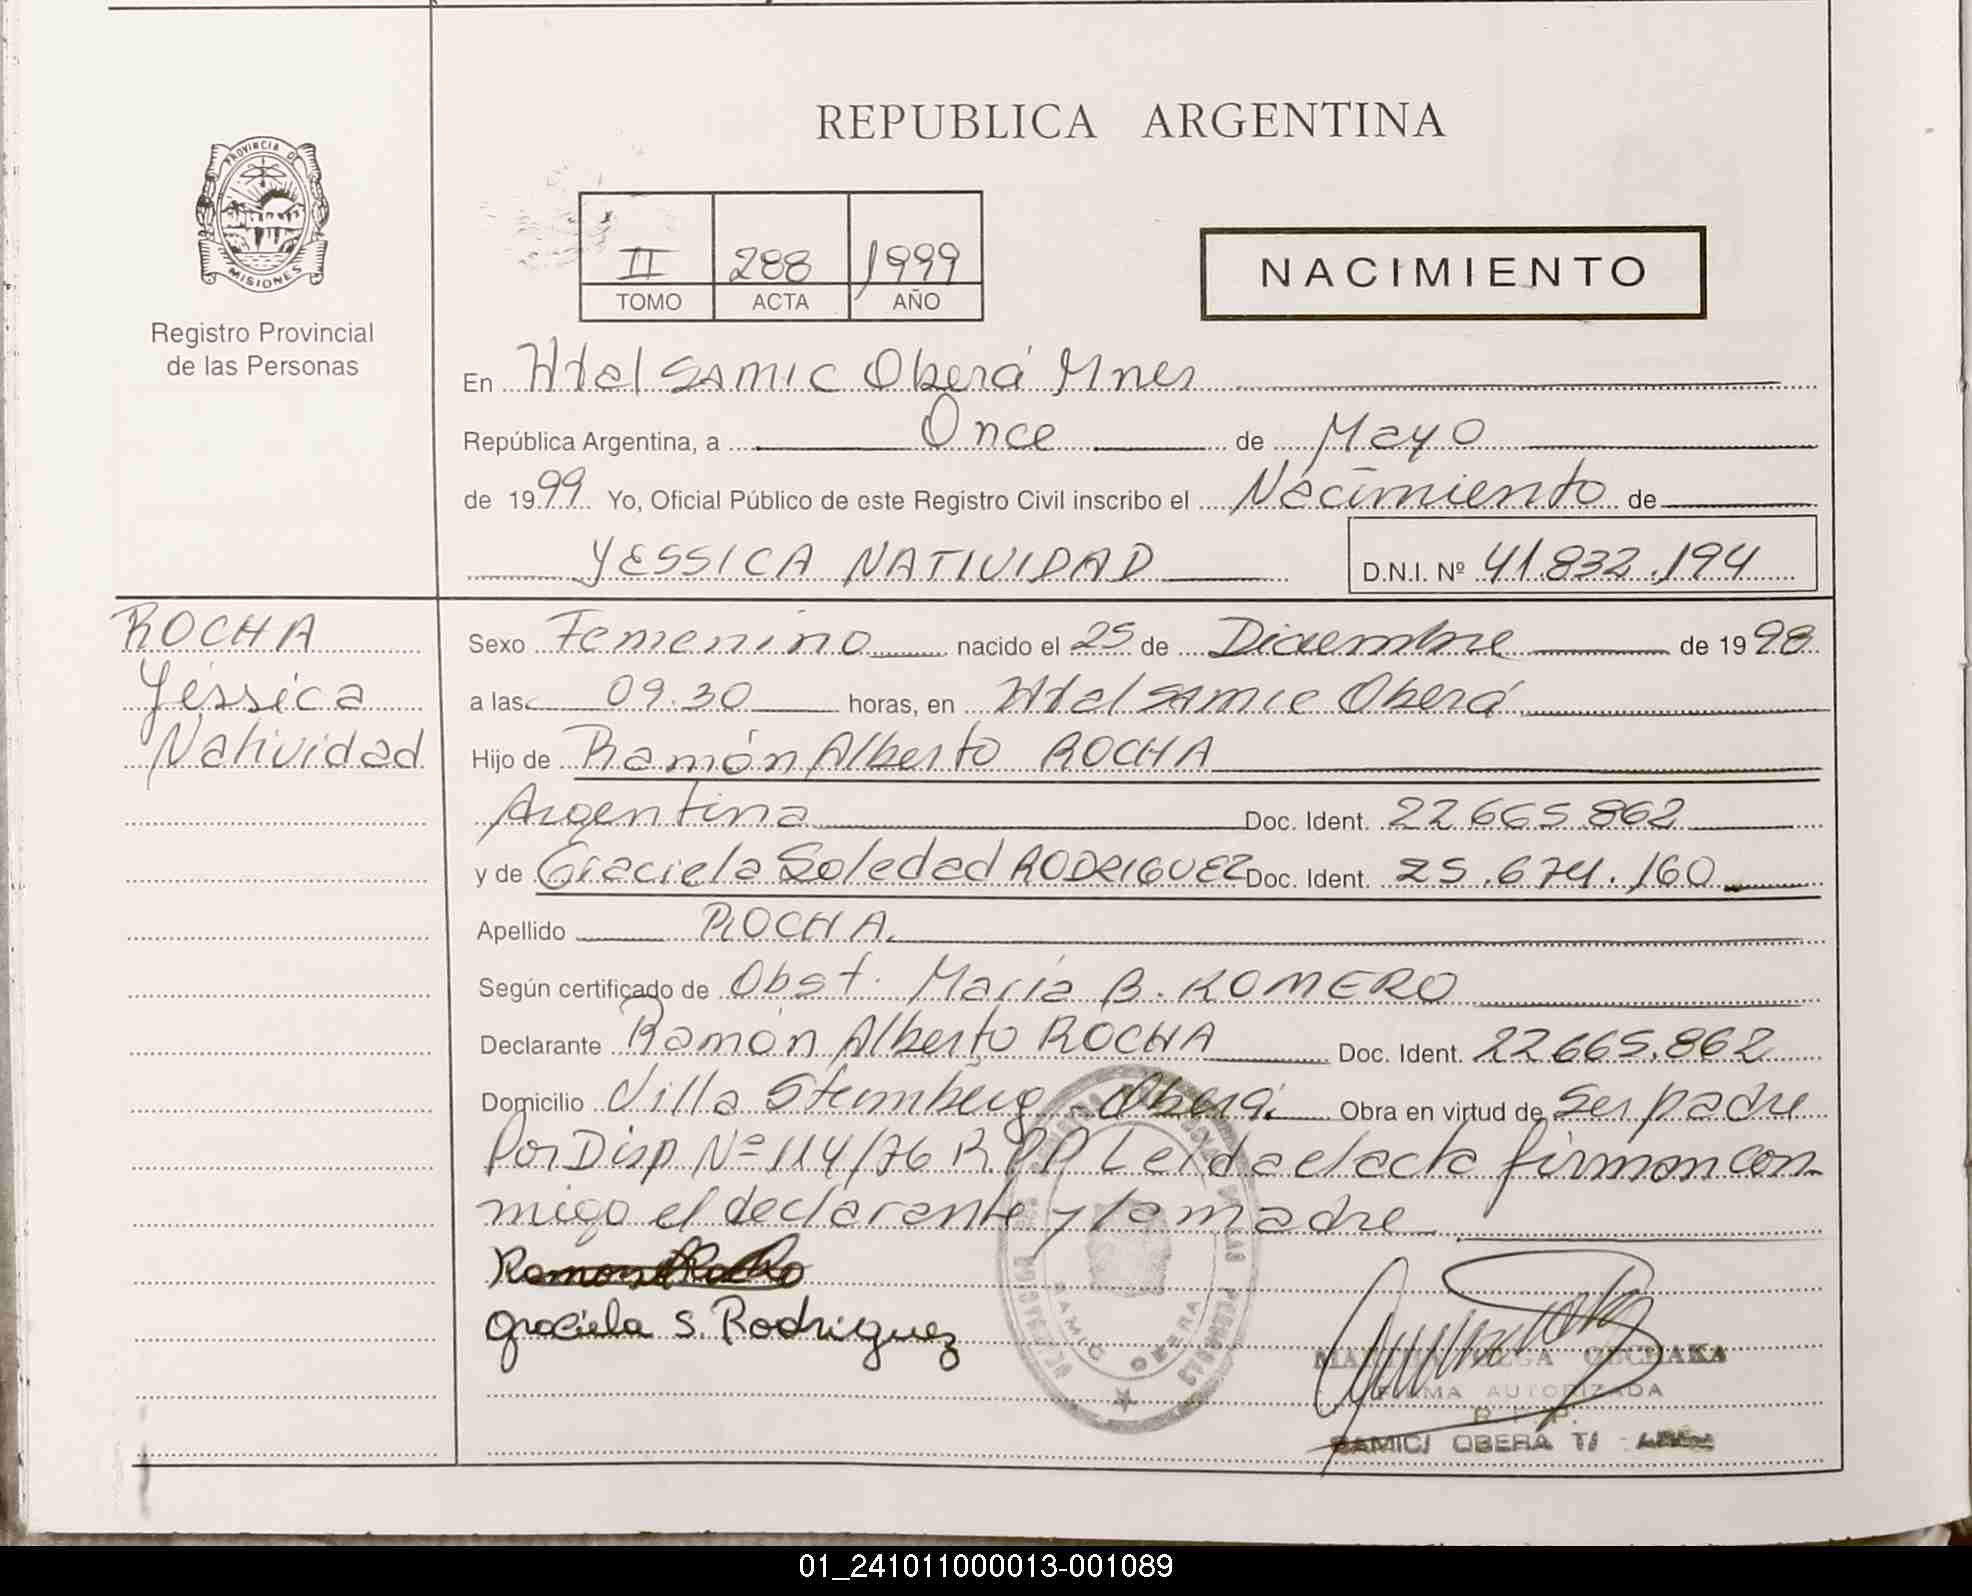 REPUBLICA ARGENTINA
PROVINCIA DE
MISIONES
Registro Provincial
de las Personas
II 288 1999
TOMO ACTA AÑO
NACIMIENTO
En Htal SAMIC Oberá Mnes
República Argentina, a Once de Mayo
de 1999 Yo, Oficial Público de este Registro Civil inscribo el Nacimiento de
YESSICA NATIVIDAD D.N.I. Nº 41.832.194
ROCHA
Yessica
Natividad
Sexo Femenino nacido el 25 de Diciembre de 1998
a las 09.30 horas, en Htal SAMIC Oberá
Hijo de Ramón Alberto ROCHA
Argentina Doc. Ident. 22.665.862
y de Graciela Soledad RODRIGUEZ Doc. Ident. 25.674.160
Apellido ROCHA
Según certificado de Obst. María B. ROMERO
Declarante Ramón Alberto ROCHA Doc. Ident. 22.665.862
Domicilio Villa Stemnberg Oberá. Obra en virtud de Ser padre
Por Disp Nº 114/76 R.P.P Leída el acta firman con
migo el declarante y la madre
Graciela S. Rodriguez
SAMIC OBERA
FIRMA AUTORIZADA
R.P.P.
SAMIC OBERA
01_241011000013-001089